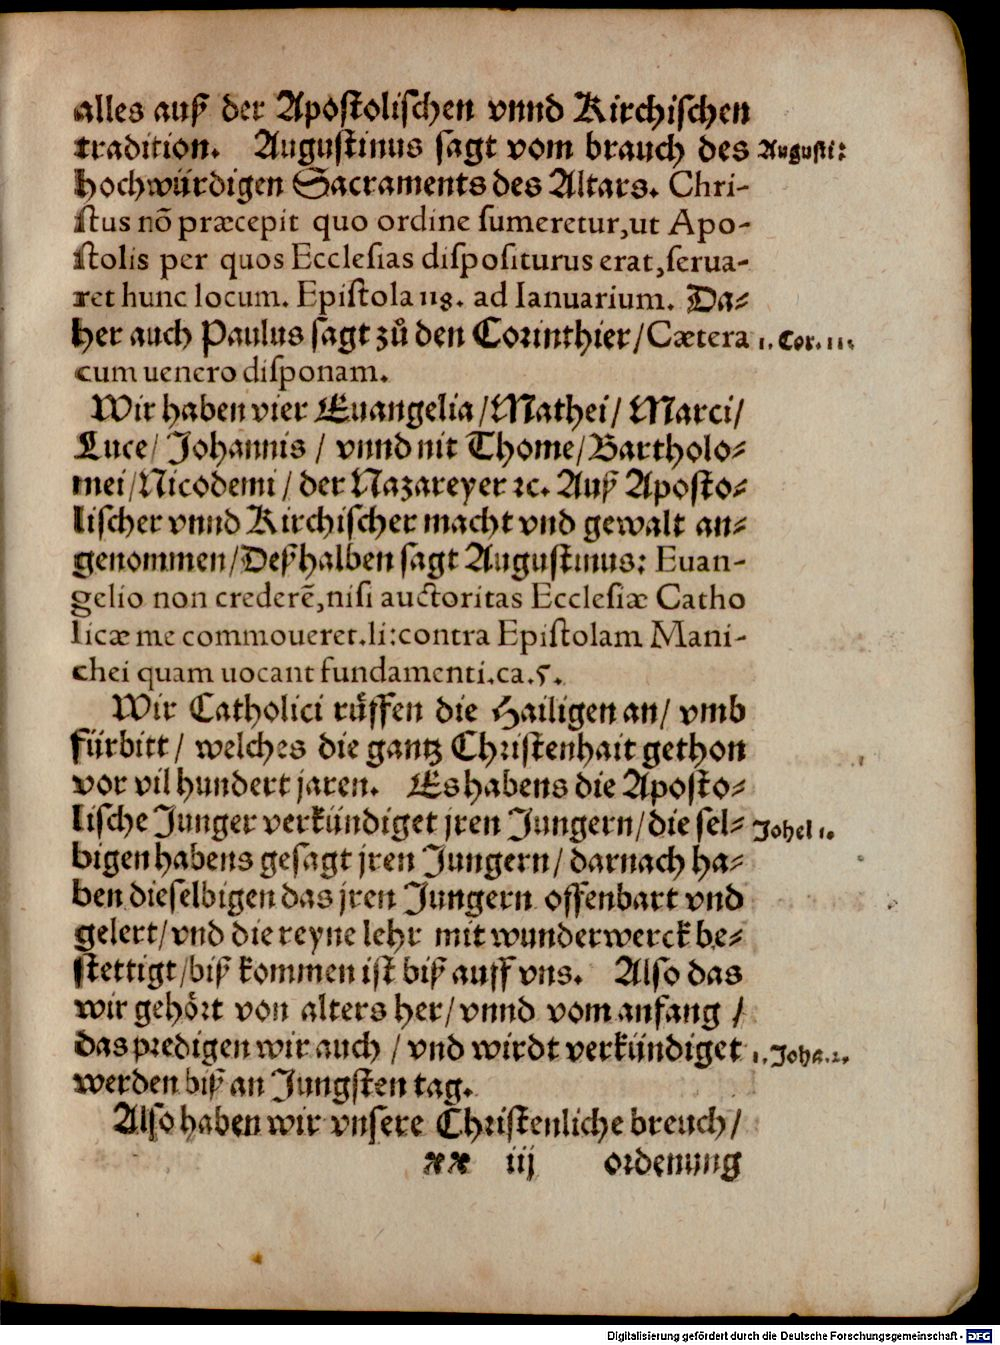 alles auß der Apostolischen vnnd Kirchischen
tradition. Augustinus sagt vom brauch des Augusti:
hochwürdigen Sacraments des Altars. Chri-
stus nõ præcepit quo ordine sumeretur,ut Apo-
stolis per quos Ecclesias dispositurus erat,serua-
ret hunc locum. Epistola 118. ad Ianuarium. Da-
her auch Paulus sagt zů den Corinthier/Cætera 1. Cor. 11.
cum uenero disponam.
Wir haben vier Euangelia/Mathei/ Marci/
Luce/ Johannis / vnnd nit Thome/Bartholo-
mei/Nicodemi / der Nazareyer ꝛc. Auß Aposto-
lischer vnnd Kirchischer macht vnd gewalt an-
genommen/Deßhalben sagt Augustinus: Euan-
gelio non crederẽ,nisi auctoritas Ecclesiæ Catho
licæ me commoueret.li:contra Epistolam Mani-
chei quam uocant fundamenti.ca.5.
Wir Catholici růffen die Hailigen an/ vmb
fürbitt/ welches die gantz Christenhait gethon
vor vil hundert jaren. Es habens die Aposto-
lische Junger verkündiget jren Jungern/die sel- Johel 1.
bigen habens gesagt jren Jungern/ darnach ha-
ben dieselbigen das jren Jungern offenbart vnd
gelert/vnd die reyne lehr mit wunderwerck be-
stettigt/biß kommen ist biß auff vns. Also das
wir gehört von alters her/vnnd vom anfang /
das predigen wir auch / vnd wirdt verkündiget 1. Joha.2.
werden biß an Jungsten tag.
Also haben wir vnsere Christenliche breuch/
xx iij ordenung
Digitalisierung gefördert durch die Deutsche Forschungsgemeinschaft - DFG